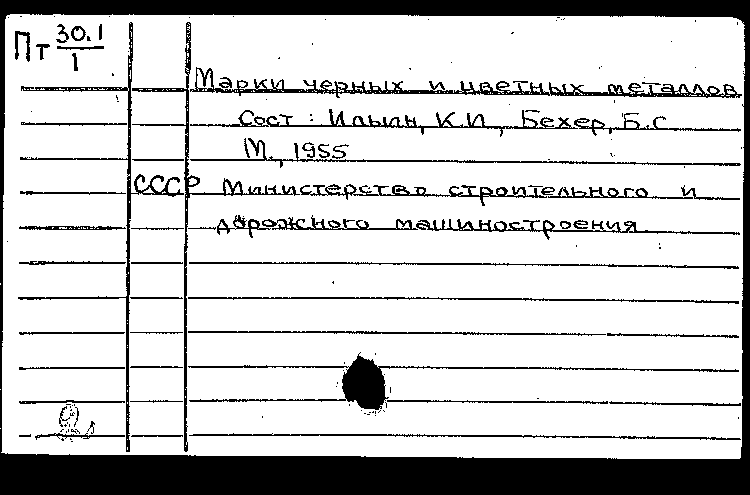 Пт 30.1
1
Марки черных и цветных металлов
Сост : Ильин, К.И., Бехер, Б.С
М., 1955
СССР Министерство строительного и
дорожного машиностроения